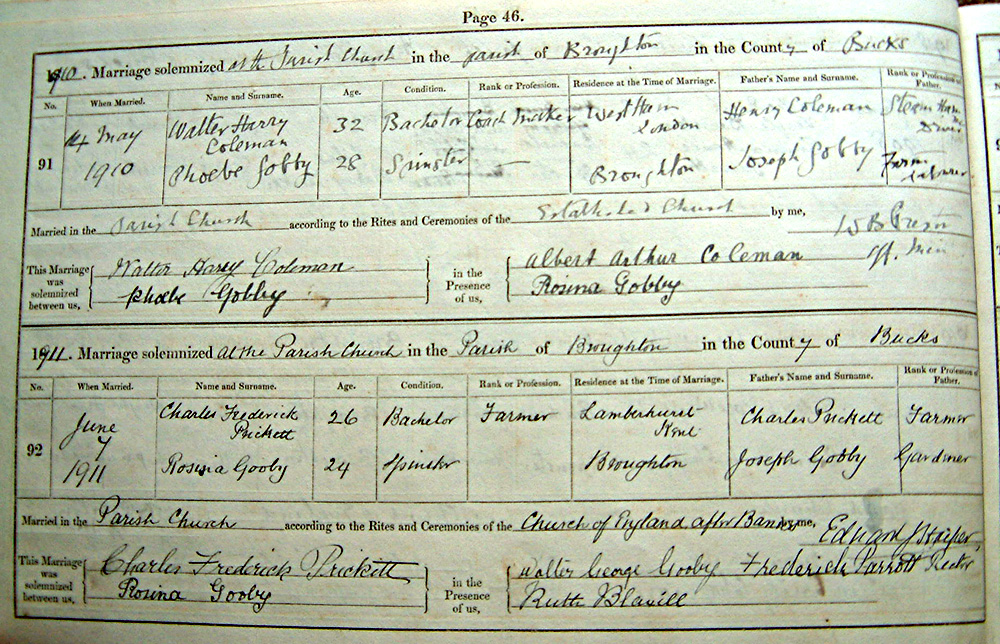 Page 46.
1910. Marriage solemnized at the Parish Church in the parish of Broughton in the County of Bucks
No. When Married. Name and Surname. Age. Condition. Rank or Profession. Residence at the Time of Marriage. Father's Name and Surname. Rank or Profession of Father.
91
4 May
1910
Walter Harry
Coleman
32 Bachelor Coach Maker West Ham
London
Henry Coleman
Driver
Phoebe Gobby 28 Spinster — Broughton Joseph Gobby Farm
Labourer
Married in the Parish Church according to the Rites and Ceremonies of the Established Church by me,
W B
Off. Min
This Marriage was solemnized between us, Walter Harry Coleman
Phoebe Gobby
in the Presence of us, Albert Arthur Coleman
Rosina Gobby
1911. Marriage solemnized at the Parish Church in the Parish of Broughton in the County of Bucks
No. When Married. Name and Surname. Age. Condition. Rank or Profession. Residence at the Time of Marriage. Father's Name and Surname. Rank or Profession of Father.
92
June
7
1911
Charles Frederick
Prickett
26 Bachelor Farmer Lamberhurst
Kent
Charles Prickett Farmer
Rosina Gooby 24 Spinster Broughton Joseph Gobby Gardiner
Married in the Parish Church according to the Rites and Ceremonies of the Church of England after Banns by me,
Edward
Rector
This Marriage was solemnized between us, Charles Frederick Prickett
Rosina Gooby
in the Presence of us, Walter George Gooby Frederick Parrott
Ruth